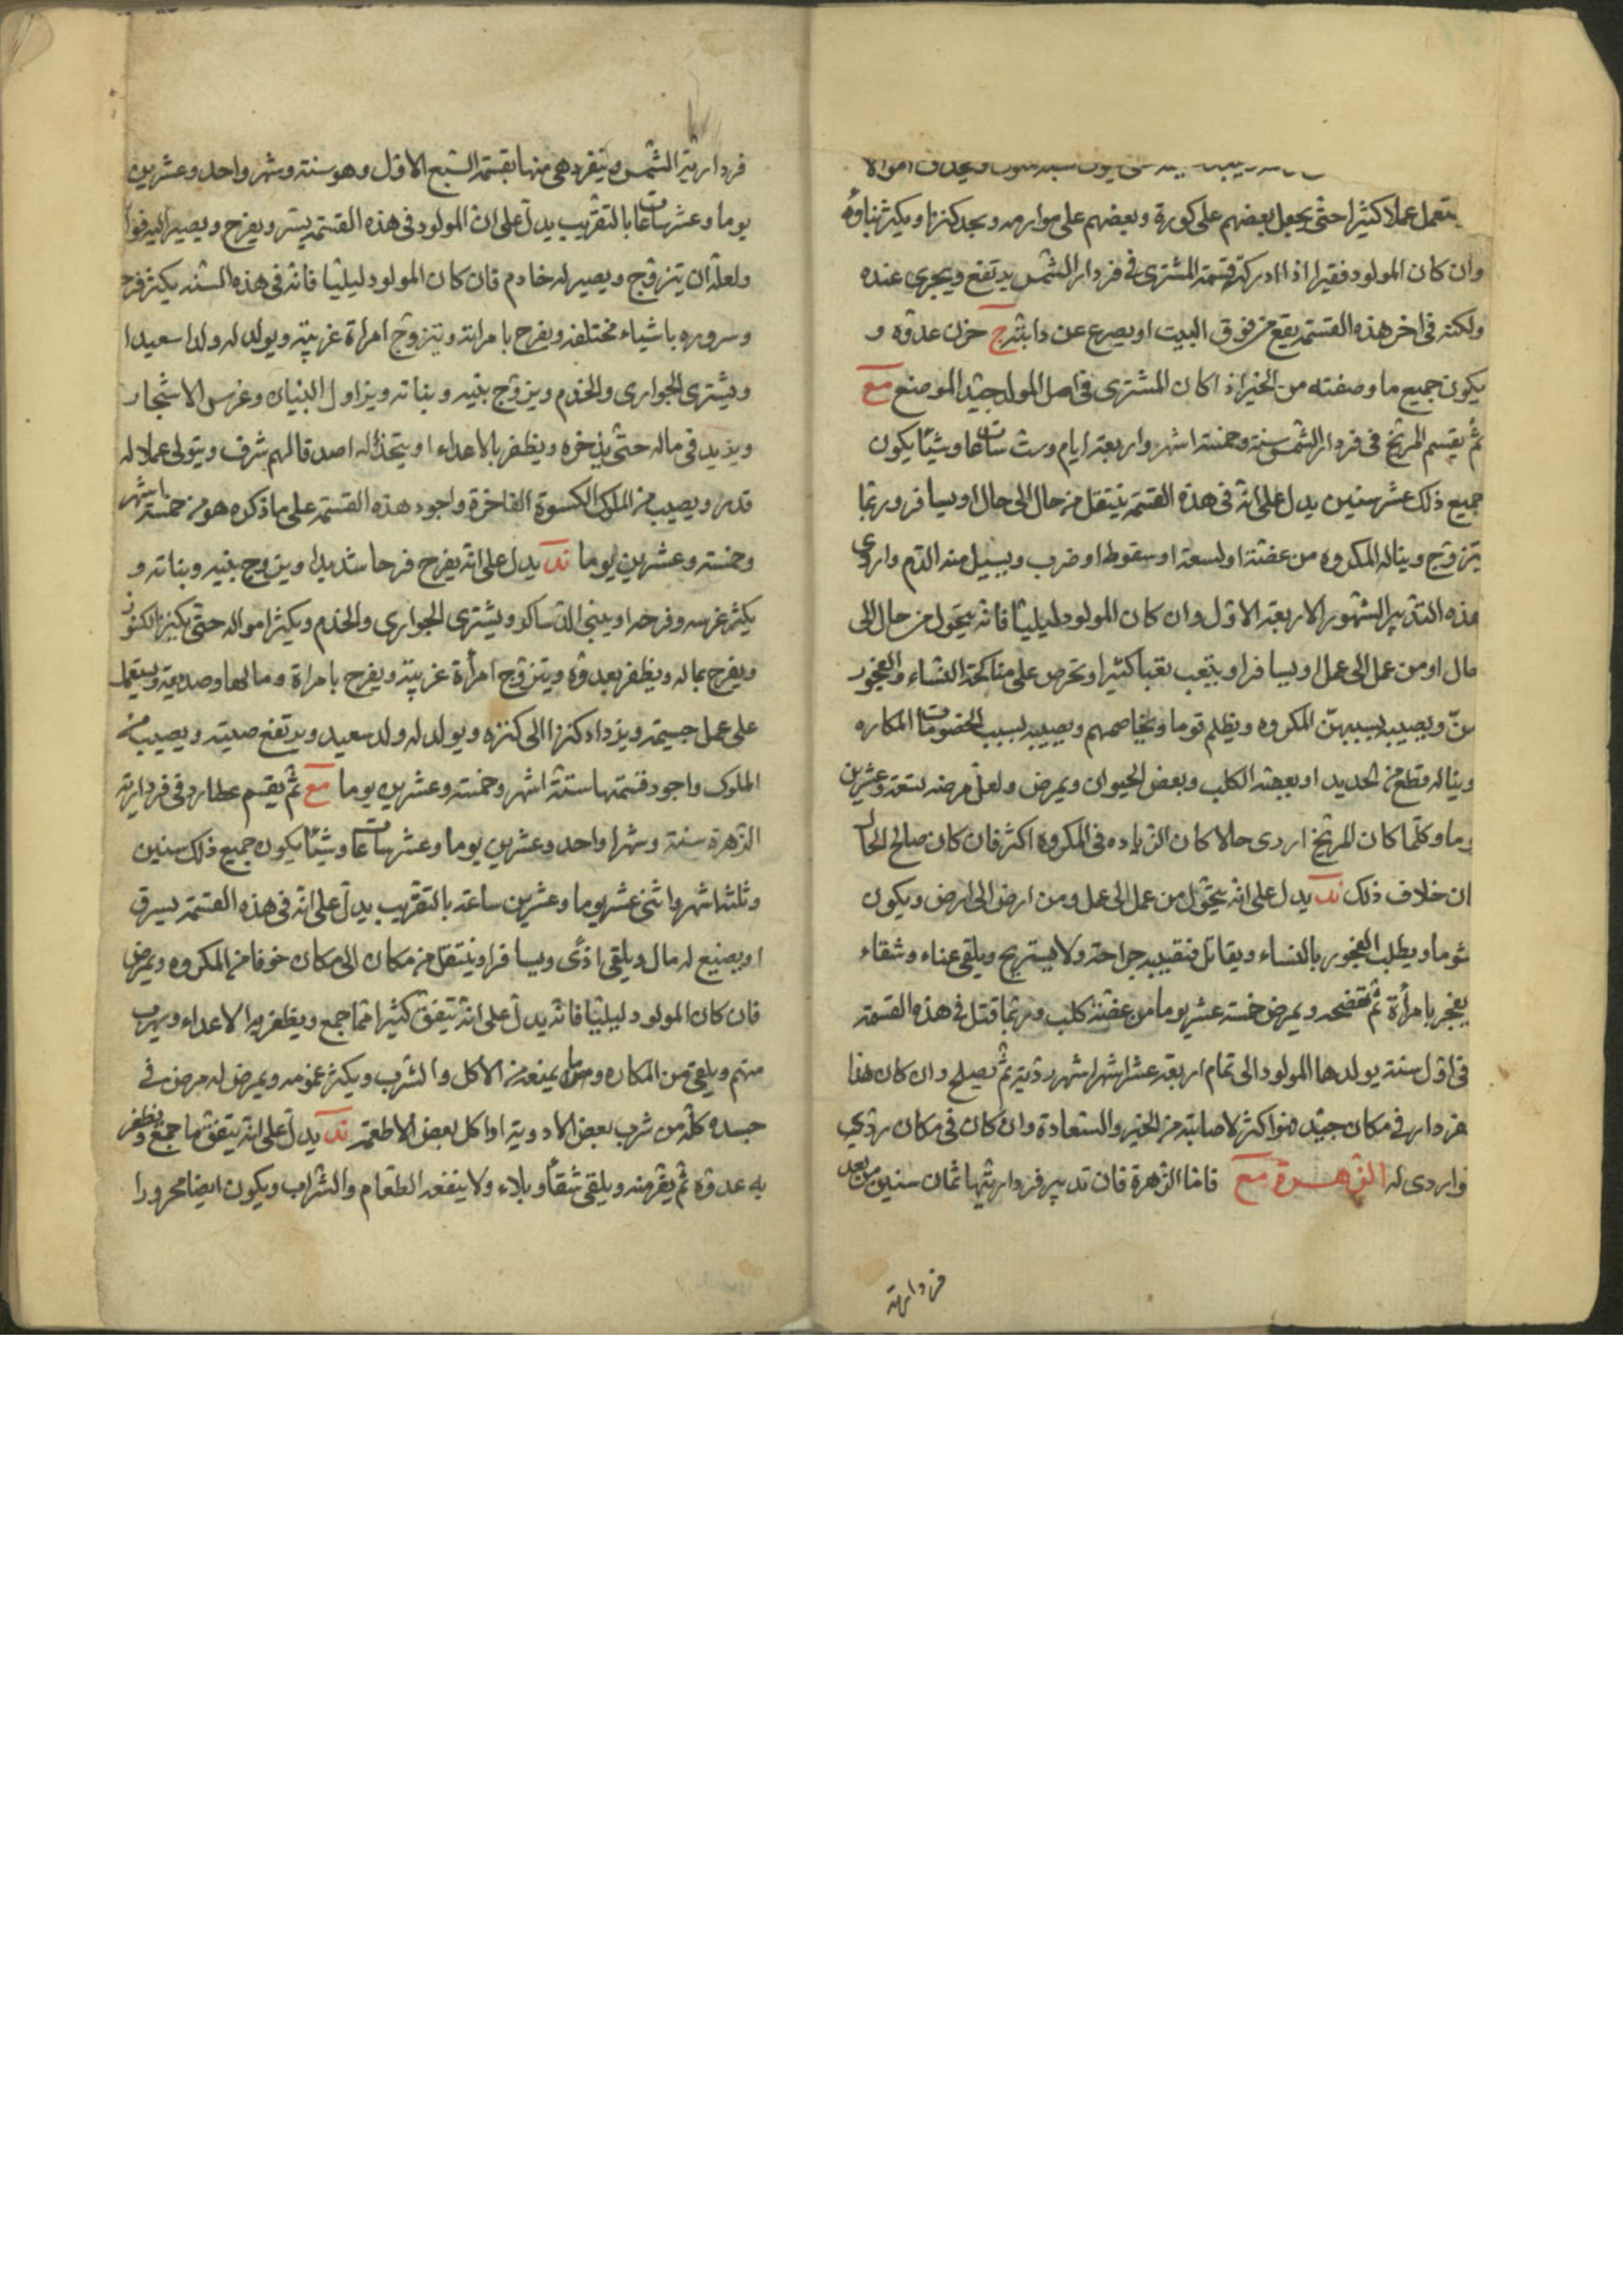 يتعمل عملا كثيرا حتى يجعل بعضهم على كورة وبعضهم على موارده ويجد كنزا ويكثر بناؤه
وان كان المولود فقيرا اذا ادركته قسمة المشترى في فردار الشمس يرتفع ويجرى عنده
ولكنه فى اخر هذه القسمة يقع من فوق البيت او يصرع عن دابته ج حزن عدوه و
يكون جميع ما وصفته من الخير اذا كان المشترى فى اصل المولد جيد الموضع مع
ثم يقسم المريخ فى فردار الشمس سنة وخمسة اشهر واربعة ايام وست ساعات وشيئا يكون
جميع ذلك عشر سنين يدل على انه فى هذه القسمة ينتقل من حال الى حال او يسافر وربما
يتزوج ويناله المكروه من عضة او لسعة او سقوط او ضرب ويسيل منه الدم واردى
هذه التدبير الشهور الاربعة الاول وان كان المولود ليليا فانه يتحول من حال الى
حال او من عمل الى عمل او يسافر او يتعب تعبا كثيرا ويحرص على مناكحة النساء والفجور
بهن ويصيبه بسببهن المكروه ويظلم قوما ويخاصمهم ويصيبه بسبب الخصومات المكاره
ويناله قطع من الحديد او يعضه الكلب وبعض الحيوان ويمرض ولعل مرضه تسعة وعشرين
يوما وكلما كان المريخ اردى حالا كان الزياده فى المكروه اكثر فان كان صالح الحال
كان خلاف ذلك ند يدل على انه يتحول من عمل الى عمل ومن ارض الى ارض ويكون
شوما ويطلب الفجور بالنساء ويقاتل فتصيبه جراحة ولا يستريح ويلقى عناء وشقاء
يفجر بامرأة ثم تفضحه ويمرض خمسة عشر يوما من عضة كلب وربما قتل فى هذه القسمة
فى اول سنة يولد ها المولود الى تمام اربعة عشر اشهر ردية ثم يصلح وان كان هذا
فردار فى مكان جيد فهو اكثر لاصابته من الخير والسعادة وان كان فى مكان ردي
فاردى له الزهرة مع فاما الزهرة فان تدبير فرداريتها ثمان سنين من بعد
فردارية
فردارية الشمس وينفرد هى منها بقسمة السبع الاول وهو سنة وشهر واحد وعشرين
يوما وعشر ساعات بالتقريب يدل على ان المولود فى هذه القسمة يسر ويفرح ويصير اليه فوا
ولعله ان يتزوج ويصير له خادم فان كان المولود ليليا فانه فى هذه السنه يكثر فرح
وسروره باشياء مختلفة ويفرح بامراته ويتزوج امراة غريبة ويولد له ولدا سعيدا
ويشترى الجوارى والخدم ويزوج بنيه وبناته ويزاول البنيان وغرس الاشجار
ويزيد فى ماله حتى يذخره ويظفر بالاعداء او يتخذ له اصدقا لهم شرف ويتولى عملا له
قدر ويصيب من الملوك الكسوة الفاخرة واجود هذه القسمة على ما ذكره هو من خمسة اشهر
وخمسة وعشرين يوما ند يدل على انه يفرح فرحا شديدا ويزوج بنيه وبناته و
يكثر غرسه وفرحه او يبنى الدساكر ويشترى الجوارى والخدم ويكثر امواله حتى يكنز الكنوز
ويفرح بماله ويظفر بعدوه ويتزوج امرأة غريبة ويفرح بامراة ومالها وصديقه ويستعمل
على عمل جسيمة ويزداد كنزا الى كنزه ويولد له ولد سعيد ويرتفع صيته ويصيب من
الملوك واجود قسمتها ستة اشهر وخمسة وعشرين يوما مع ثم يقسم عطارد فى فردارية
الزهرة سنة وشهرا واحد وعشرين يوما وعشر ساعات وشيئا يكون جميع ذلك سنين
وثلثة اشهر واثنى عشر يوما وعشرين ساعة بالتقريب يدل على انه فى هذه القسمة يسرق
او يضيع له مال ويلقى اذى ويسافر او ينتقل من مكان الى مكان خوفا من المكروه ويمرض
فان كان المولود ليليا فانه يدل على انه ينفق كثيرا مما جمع ويظفر به الاعداء ويهرب
منهم ويلقى من المكاره يمنعه من الاكل والشرب ويكثر غمومه ويمرض له مرض فى
جسده كله من شرب بعض الادوية او اكل بعض الاطعمة ند يدل على انه ينفق ما جمع ويظفر
به عدوه ثم يفر منه ويلقى شقاء وبلاء ولا ينفعه الطعام والشراب ويكون ايضا محرورا